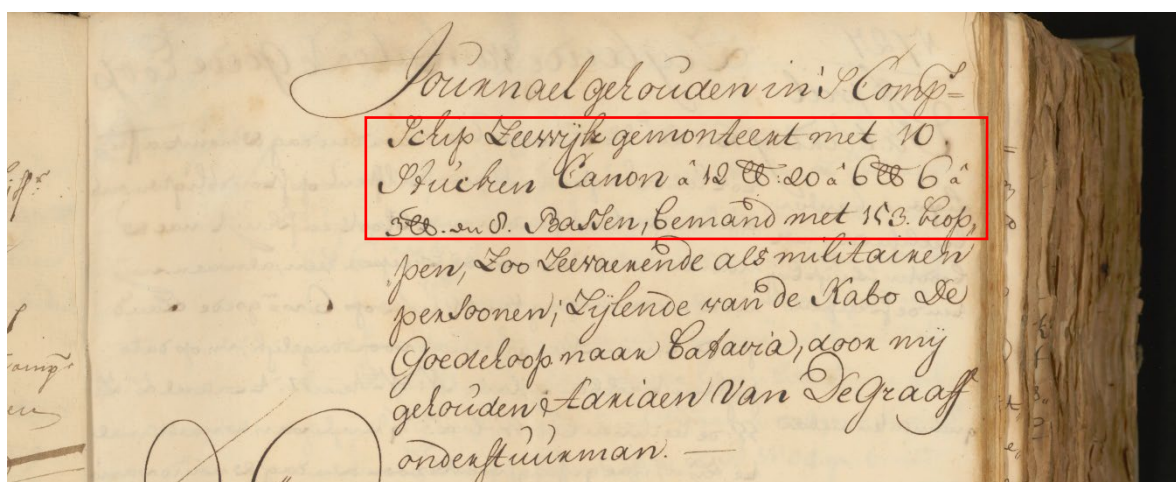 Journael gehouden in 's Comp=
Schip Zeewijk gemonteert met 10
Stucken Canon â 12 ℔: 20 â 6 ℔ 6 â
3 ℔. en 8. Bassen, bemand met 153. kop,
pen, Zoo Zeevaerende als militairen
persoonen; Zijlende van de Kabo De
Goedehoop naar batavia, door mij
gehouden Adriaen Van De Graaff
onderstuurman. —